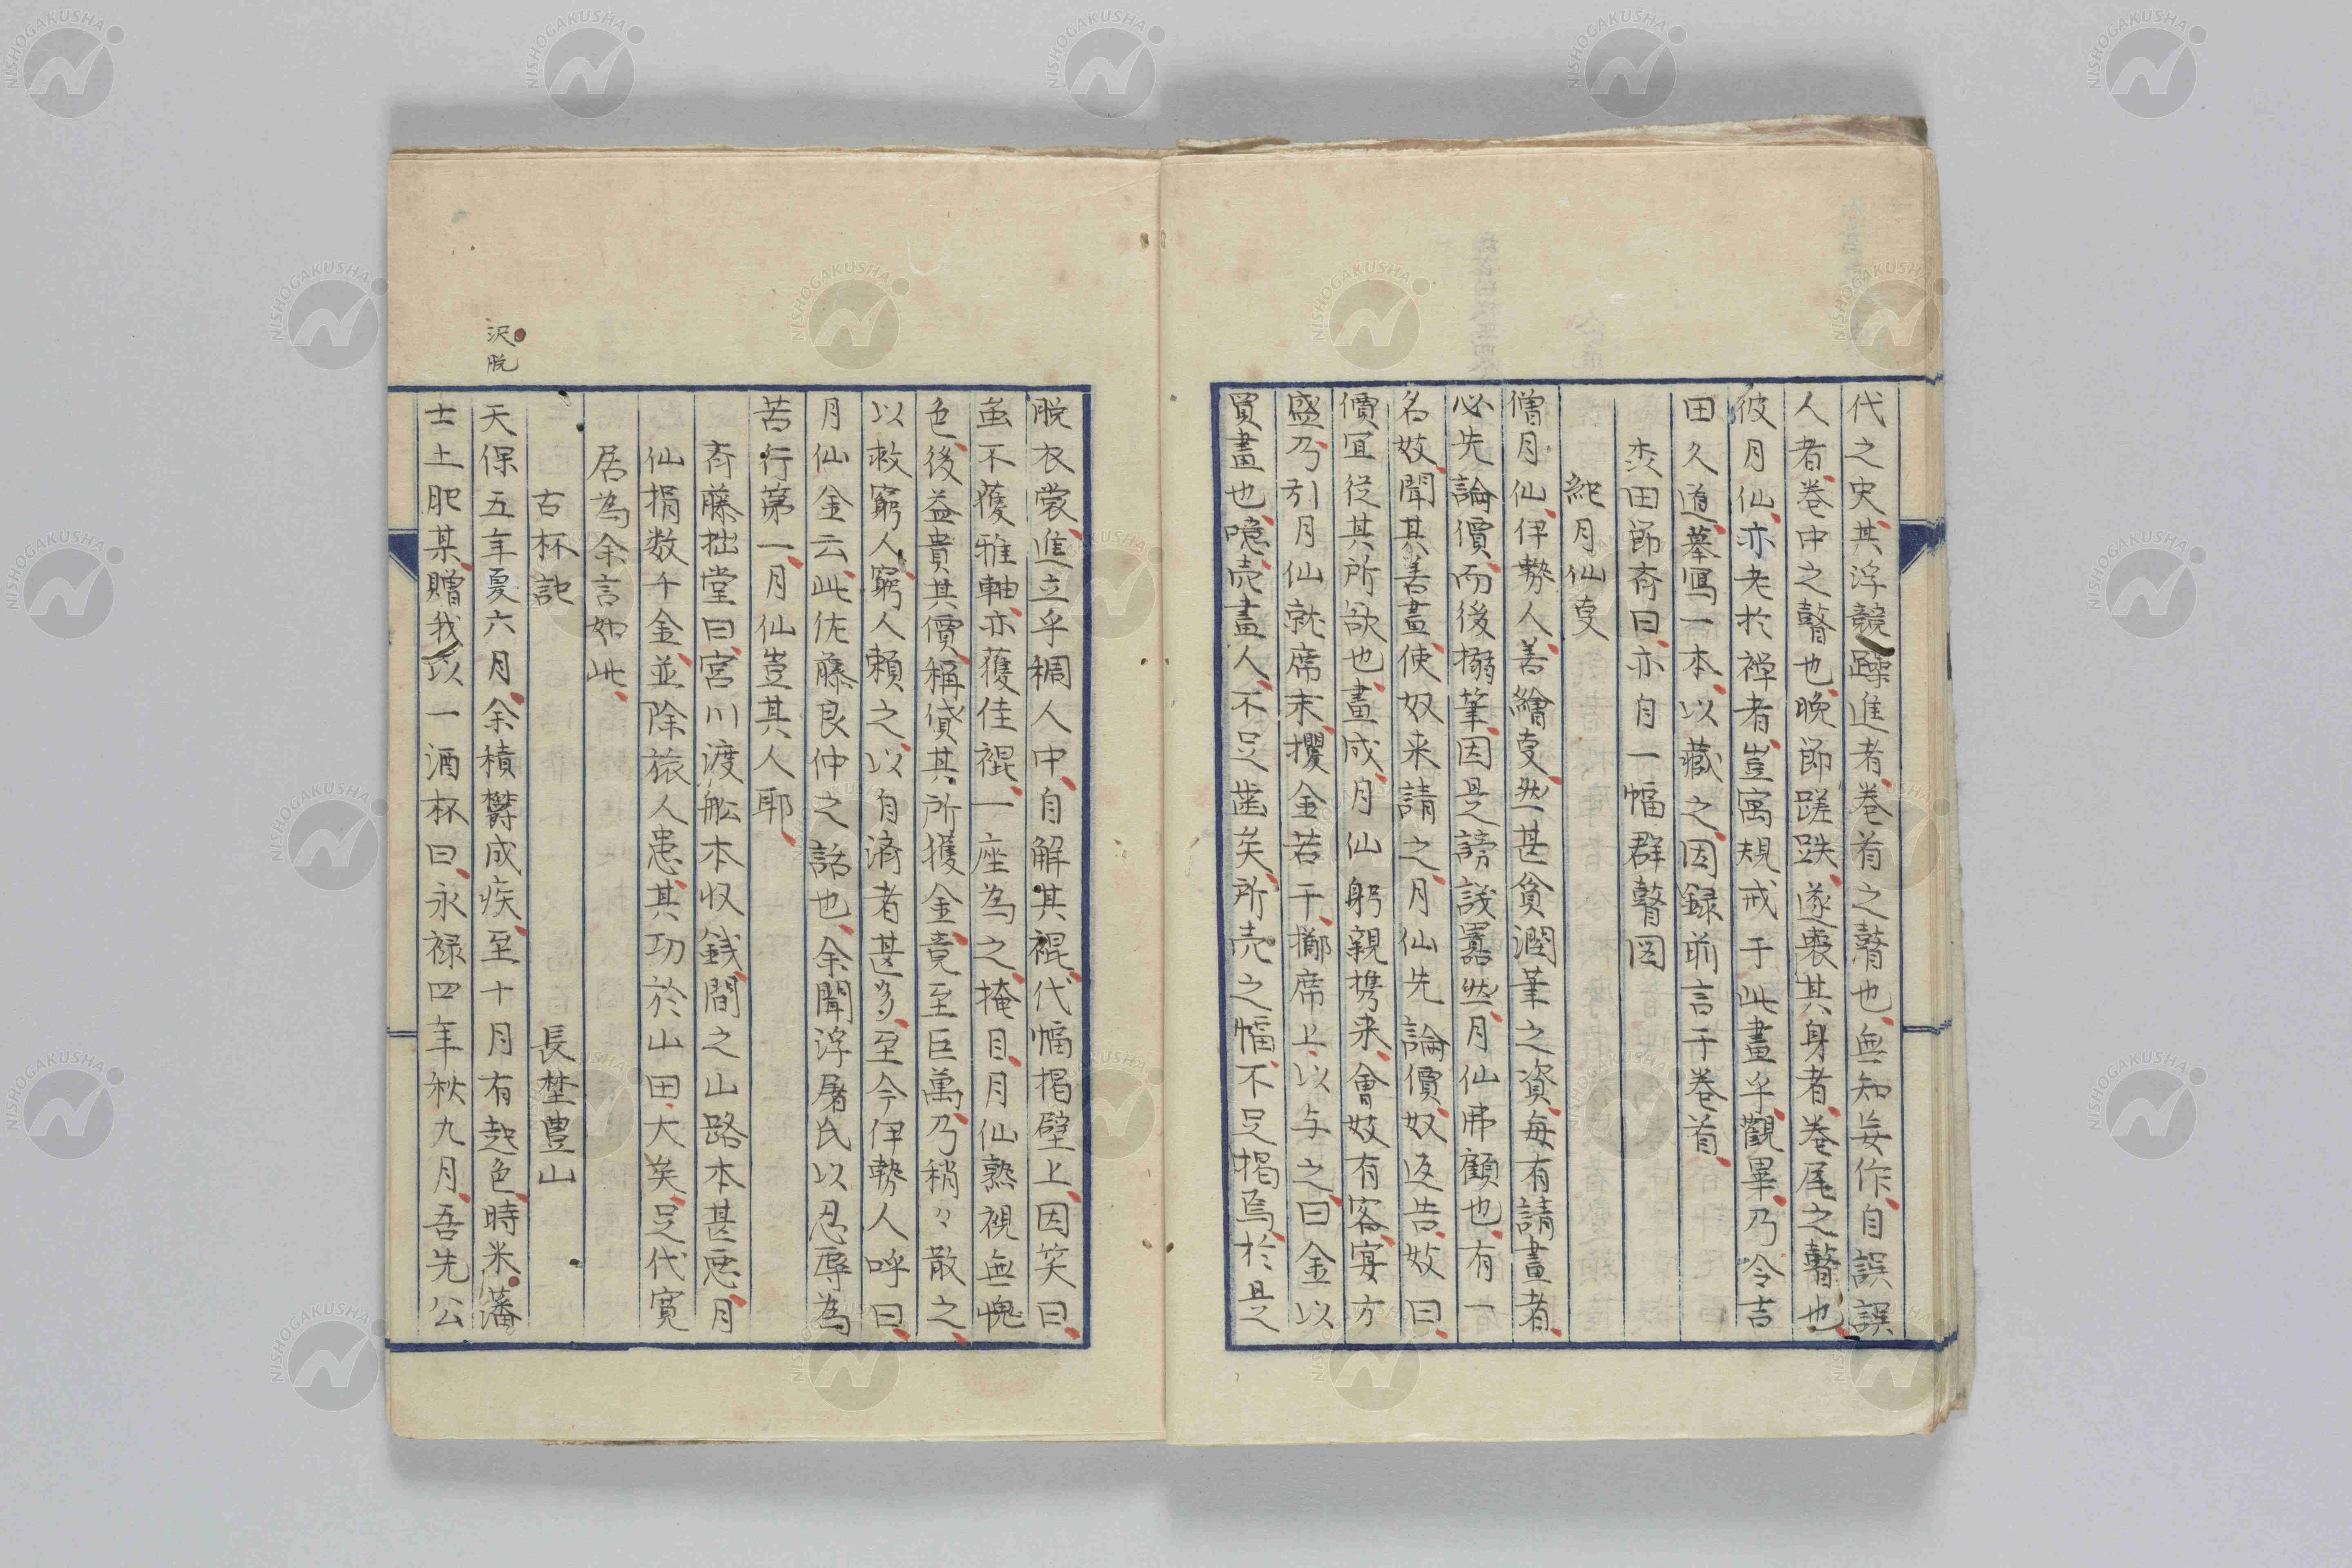 代之史其浮競躁進者巻首之瞽也無知妄作自誤誤
人者巻中之瞽也晩節蹉跌遂喪其身者巻尾之瞽也
彼月仙亦老於禅者豈寓規戒于此畫乎觀畢乃令吉
田久道摹寫一本以蔵之因録前言于巻首
田節斎曰亦自一幅群瞽図
紀月仙叓
僧月仙伊勢人善繪叓然甚貪潤筆之資毎有請畫者
必先論價而後搦筆因是謗議囂然月仙弗顧也有一
名妓聞其善畫使奴来請之月仙先論價奴返告妓曰
價冝從其所欲也畫成月仙躬親携来會妓有客宴方
盛乃引月仙就席末攫金若干擲席上以与之曰金以
買畫也噫売畫人不足歯矣所売之幅不足掲焉於是
脱衣裳進立乎稠人中自解其裩代幅掲壁上因笑曰
虽不獲雅軸亦獲佳裩一座為之掩目月仙熟視無愧
色後益貴其價稱貸其所獲金竟至巨萬乃稍々散之
以救窮人窮人頼之以自済者甚多至今伊勢人呼曰
月仙金云此佐藤良仲之話也余聞浮屠氏以忍辱為
苦行第一月仙豈其人耶
斉藤拙堂曰宮川渡舩本収銭間之山路本甚悪月
仙捐数千金並除旅人患其功於山田大矣足代寛
居為余言如此
古杯記　長埜豊山
沢脱
天保五年夏六月余積欝成疾至十月有起色時米藩
士土肥某贈我以一酒杯曰永禄四年秋九月吾先公
NISHOGAKUSHA